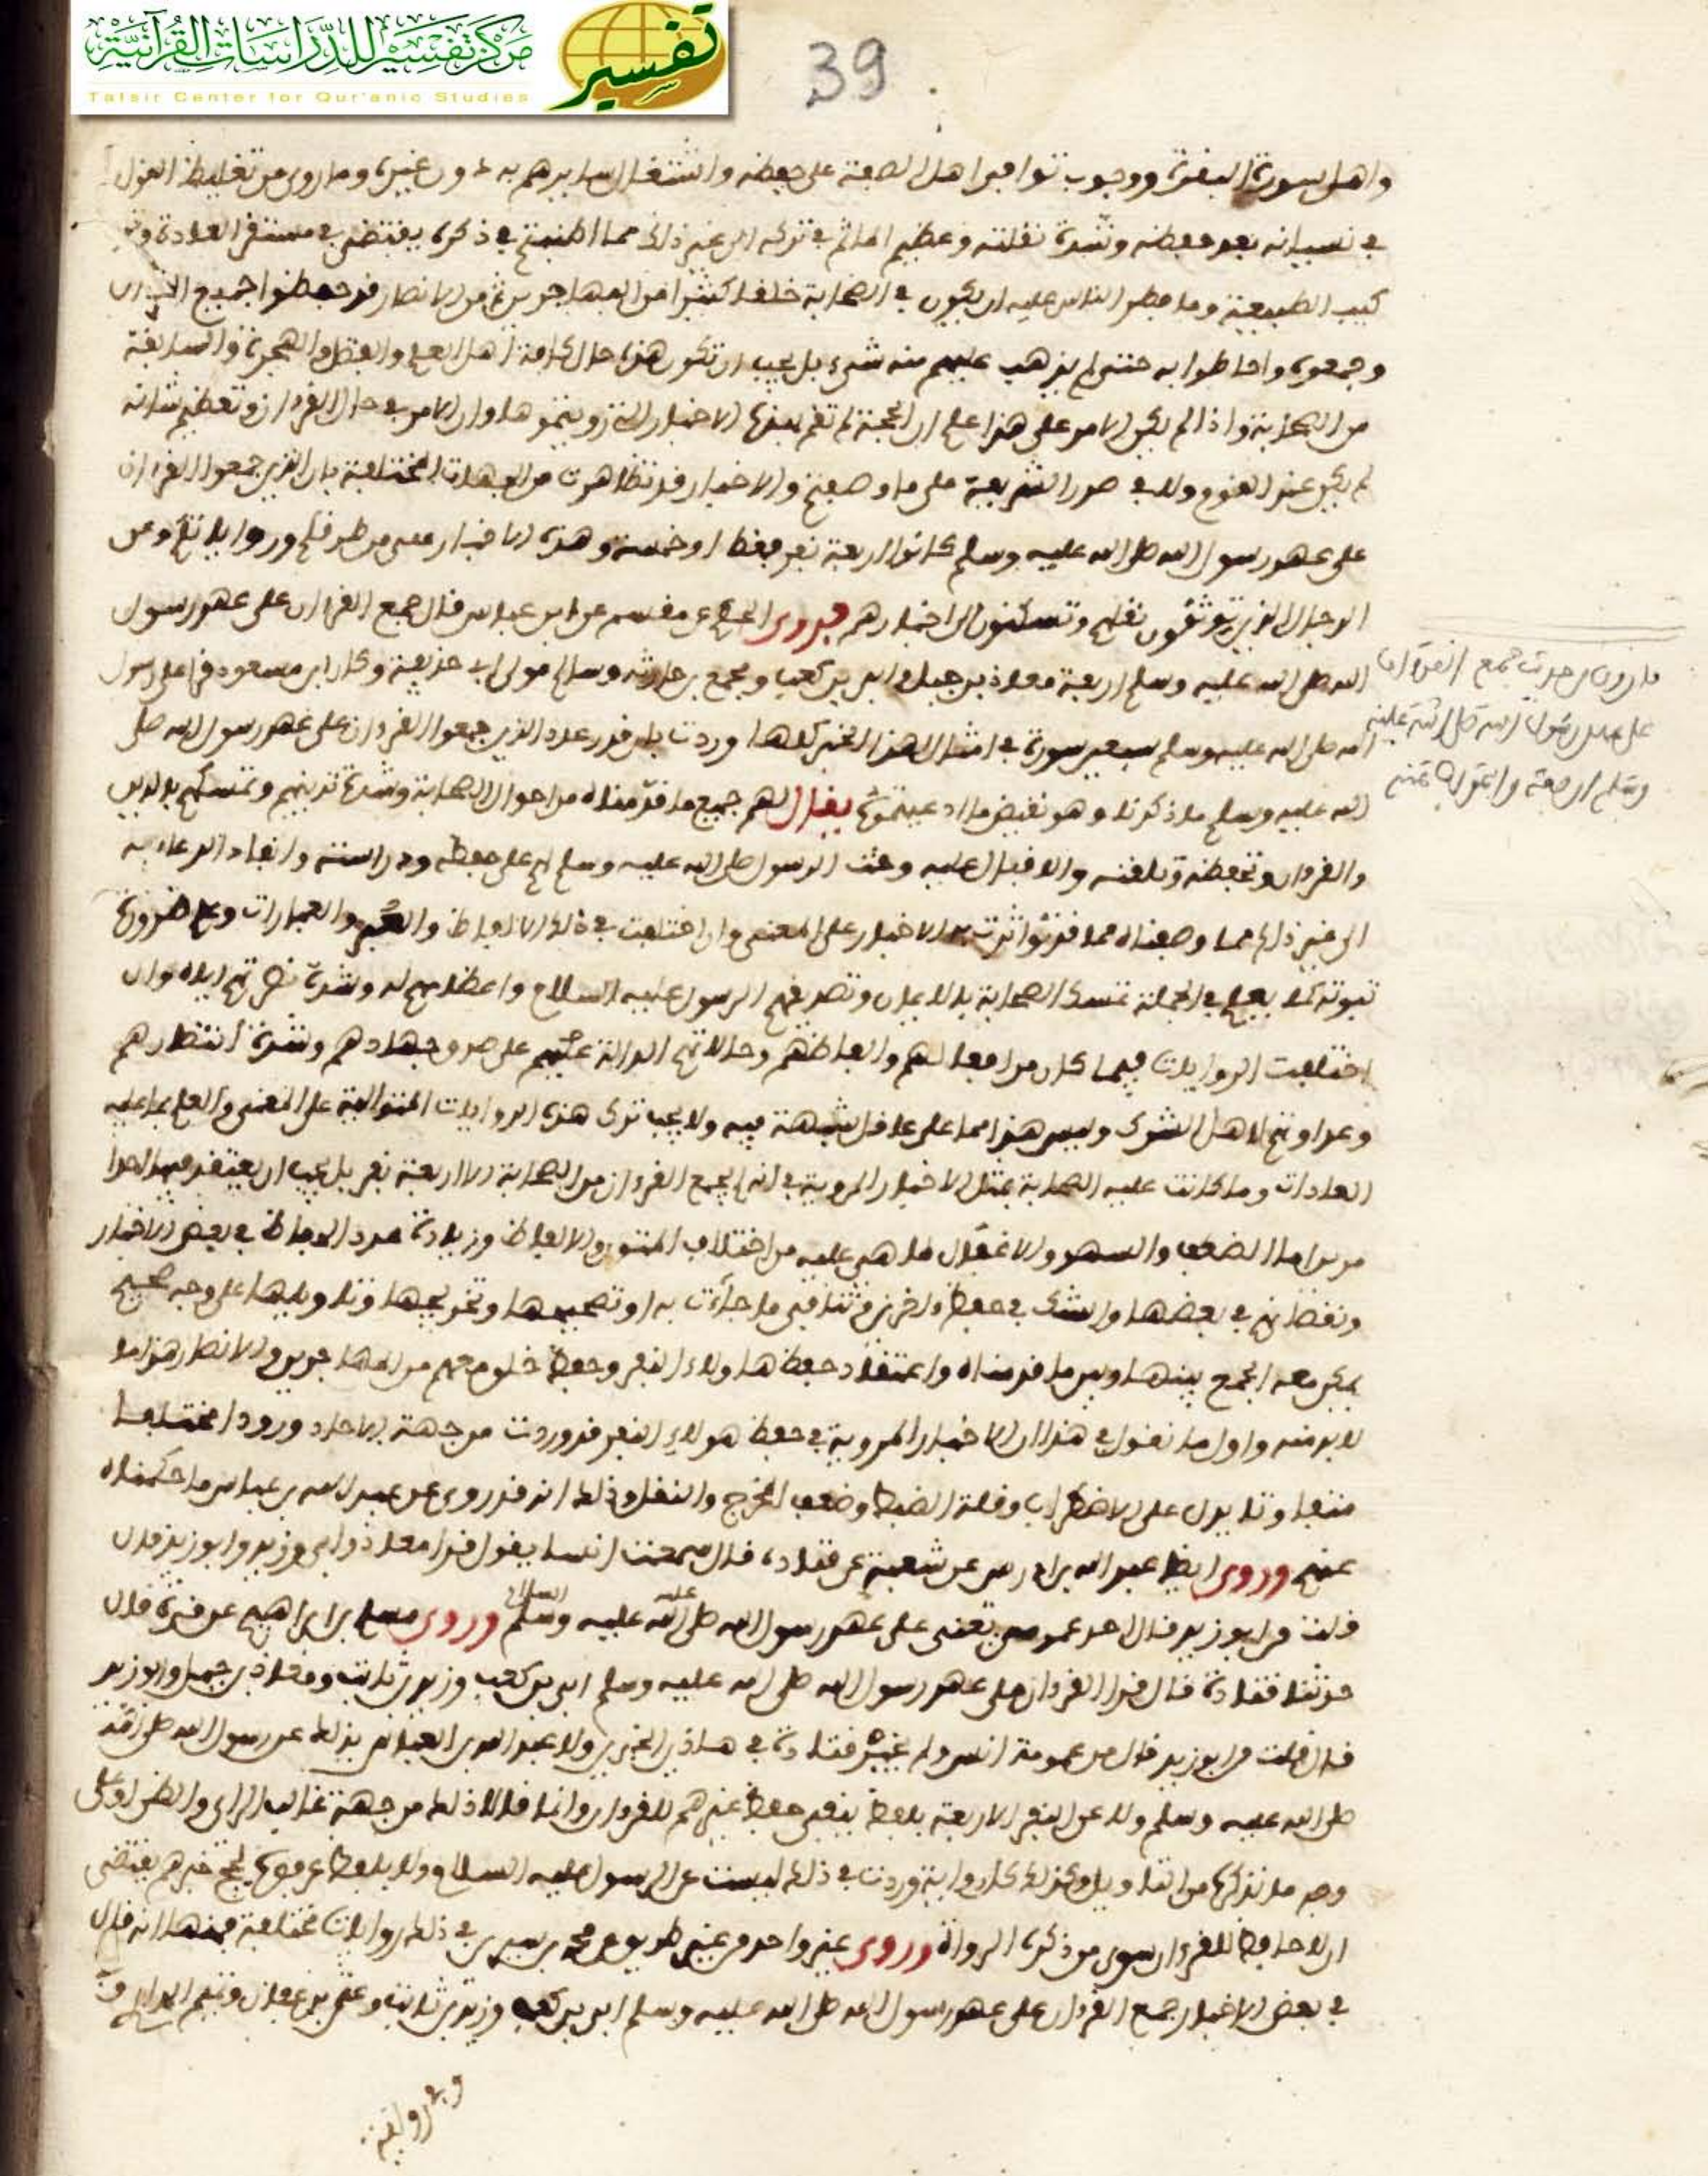 مركز تفسير للدراسات القرآنية
تفسير
Tafsir Center for Qur'anic Studies
39
واهل سورة البقرة ووجوب توافر اهل الصفة على حفظه واشتغال سايرهم به دون غيره وما روى من تغليظ القول
في نسيانه بعد حفظه وشدة تفلته وعظيم الماثم في تركه الى غير ذلك مما اطنبتم في ذكره يقتضي في مستقر العادة وتر
كيب الطبيعة وما فطر الناس عليه ان يكون في الصحابة خلقا كثيرا من المهاجرين ومن الانصار قد حفظوا جميع القرءان
وجمعوه واحاطوا به حتى لم يذهب عليهم منه شيء بل يجب ان تكون هذه حال كافة اهل العلم والفضل والهجرة والسابقة
من الصحابة واذا لم يكن الامر على هذا علم ان الحجة لم تقم بهذه الاخبار التي رويتموها وان الامر في حال القرءان وتعظيم شانه
لم يكن عند القوم ولا في صدر الشريعة على ما وصفتم والاخبار قد تظاهرت من الجهات المختلفة بان الذين جمعوا القرءان
على عهد رسول الله صلى الله عليه وسلم كانوا اربعة نفر فقط او خمسة وهذه الاخبار فهي من طرقكم ورواياتكم وعن
الرجال الذين توثقون نقلهم وتسكنون الى اخبارهم فروى الحكم عن مقسم عن ابن عباس قال جمع القرءان على عهد رسول
الله صلى الله عليه وسلم اربعة معاذ بن جبل وابي بن كعب ومجمع بن حارثة وسالم مولى ابي حذيفة وكان ابن مسعود قرا على رسول
الله صلى الله عليه وسلم سبعين سورة في امثال لهذا الخبر كلها وردت بان قدر عدد الذين جمعوا القرءان على عهد رسول الله صلى
الله عليه وسلم ما ذكرنا وهو نقيض ما ادعيتموه يقال لهم جميع ما قدمناه من احوال الصحابة وشدة تدينهم وتمسكهم بالدين
والقرءان وتحفظه وتلقنه والاقبال عليه وحث الرسول صلى الله عليه وسلم لهم على حفظه ودراسته وانفاد الدعاة به
الى غير ذلك مما وصفناه مما قد تواترت به الاخبار على المعنى وان اختلفت في ذلك الالفاظ والسير والعبارات وعلم ضرورة
ثبوته كما يعلم في الجملة تمسك الصحابة بالايمان وتصديقهم الرسول عليه السلام واعظامهم له وشدة نصرتهم اياه وان
اختلفت الروايات فيما كان من افعالهم والفاظهم وحالاتهم الدالة عليهم على صدق جهادهم وشدة انتظارهم
وعداوتهم لاهل الشرك وليس هذا مما على عاقل شبهة فيه ولا يجب ترك هذه الروايات المتوالية على المعنى والعلم بما عليه
العادات وما كانت عليه الصحابة بمثل الاخبار المروية في انه لم يجمع القرءان من الصحابة الا اربعة نفر بل يجب ان يعتقد فيها احدا
مرين اما الضعف والسهو والاغفال لما هي عليه من اختلاف المتون والالفاظ وزيادة عدد الحفاظ في بعض الاخبار
ونقصانهم في بعضها والشك في حفظ ءاخرين وتنافي ما جاءت به او تصحيحها وتخريجها وتاويلها على وجه صحيح
يمكن معه الجمع بينها وبين ما قدمناه واعتقاد حفظ هاولاء النفر وحفظ خلق معهم من المهاجرين والانصار هذا ما
لا بد منه واول ما نقول في هذا ان الاخبار المروية في حفظ هولاء النفر قد وردت من جهة الاحاد ورودا مختلفا
متفاوتا يدل على الاضطراب وقلة الضبط وضعف المخرج والنقل وذلك انه قد روي عن عبد الله بن عباس ما حكيناه
عنهم وروى ايضا عبد الله بن ادريس عن شعبة عن قتادة قال سمعت انسا يقول قرا معاذ وابي وزيد وابو زيد قال
قلت من ابو زيد قال احد عمومتي يعني على عهد رسول الله صلى الله عليه وسلم عليه السلام وروى مسلم بن ابراهيم عن قرة قال
حدثنا قتادة قال قرا القرءان على عهد رسول الله صلى الله عليه وسلم ابي بن كعب وزيد بن ثابت ومعاذ بن جبل وابو زيد
قال قلت من ابو زيد قال من عمومة انس ولم يخبر قتادة في هاذين الخبرين ولا عبد الله بن العباس بذلك عن رسول الله صلى الله
صلى الله عليه وسلم ولا عن النفر الاربعة بلفظ ينفي حفظ غيرهم للقرءان وانما قالا ذلك من جهة غالب الراي والظن او على
وجه ما نذكره من التاويل وكذلك كل رواية وردت في ذلك ليست عن الرسول عليه السلام ولا بلفظ خبرهم يقتضي
ان لا حافظ للقرءان سوى من ذكره الرواة وروى غير واحد من غير طريق عن محمد بن سيرين في ذلك روايات مختلفة فمنها انه قال
في بعض الاخبار جمع القرءان على عهد رسول الله صلى الله عليه وسلم ابي بن كعب وزيد بن ثابت وعثمن بن عفان وتميم الداري وقا
وفي رواية
ما روي من حديث جمع القرءان
على عهد رسول الله صلى الله عليه
وسلم اربعة والجواب عنه